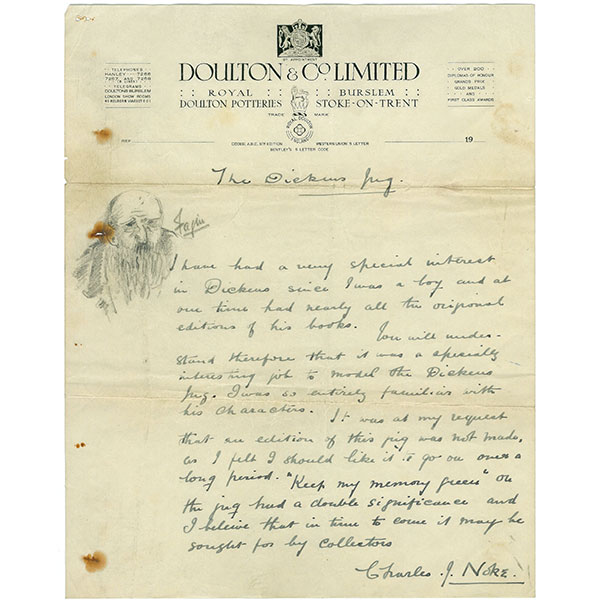 BY APPOINTMENT
DOULTON & CO. LIMITED
ROYAL
DOULTON POTTERIES
BURSLEM
STOKE-ON-TRENT
TRADE MARK
ROYAL DOULTON
ENGLAND
TELEPHONES
HANLEY 7266
7267 AND 7268
TELEGRAMS
DOULTONS BURSLEM
LONDON SHOW ROOMS
OVER 200
DIPLOMAS OF HONOUR
GRANDS PRIX
GOLD MEDALS
AND
FIRST CLASS AWARDS
CODES: A.B.C. 5TH EDITION WESTERN UNION 5 LETTER
BENTLEY'S 5 LETTER CODE
REF
19
The Dickens Jug.
Fagin
I have had a very special interest
in Dickens since I was a boy and at
one time had nearly all the original
editions of his books. You will under-
stand therefore that it was a specially
interesting job to model the Dickens
Jug. I was so entirely familiar with
his characters. It was at my request
that an edition of this jug was not made,
as I felt I should like it to go on over a
long period. "Keep my memory green" on
the jug had a double significance and
I beleive that in time to come it may be
sought for by collectors
Charles J. Noke.